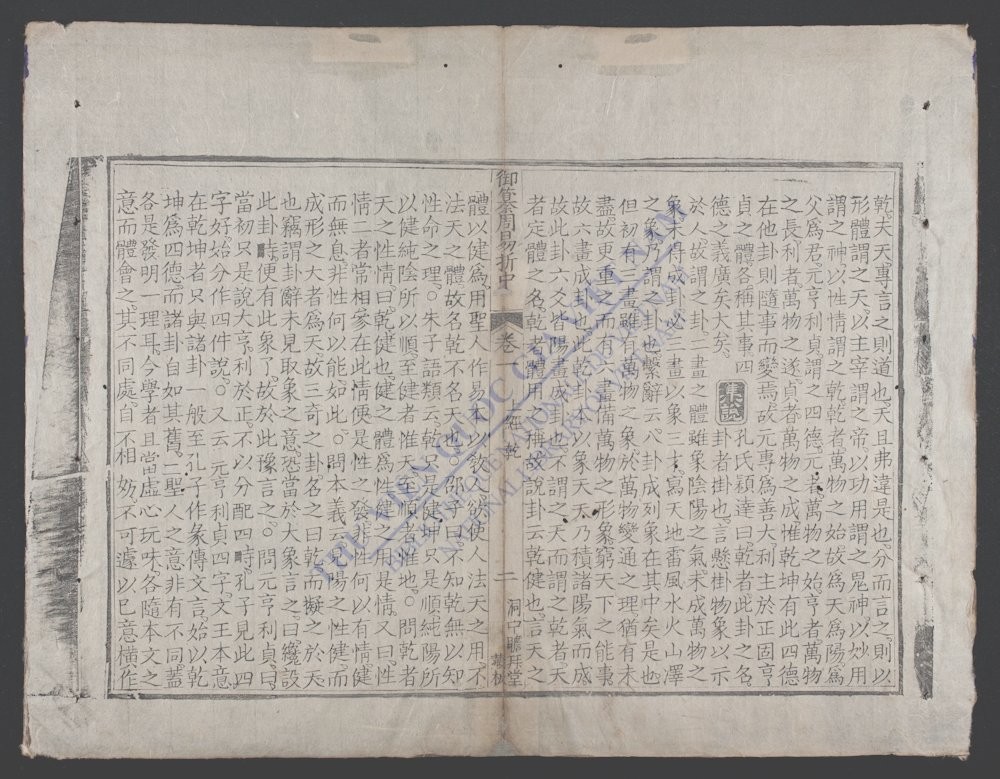 乾。天。天專言之則道也。天且弗違是也。分而言之。則以
形體謂之天。以主宰謂之帝。以功用謂之鬼神。以妙用
謂之神。以性情謂之乾。乾者萬物之始。故爲天。爲陽。爲
父。爲君。元亨利貞謂之四德。元者萬物之始。亨者萬物
之長。利者萬物之遂。貞者萬物之成。惟乾坤有此四德
在他卦則隨事而變焉。故元專爲善大。利主於正固。亨
貞之體。各稱其事。四
德之義。廣矣大矣。
集說
孔氏穎達曰。乾者此卦之名。
卦者掛也。言懸掛物象以示
於人。故謂之卦。二畫之體。雖象陰陽之氣。未成萬物之
象。未得成卦。必三畫以象三才。寫天地雷風水火山澤
之象。乃謂之卦也。繫辭云。八卦成列。象在其中矣。是也
但初有三畫。雖有萬物之象。於萬物變通之理。猶有未
盡。故更重之而有六畫。備萬物之形象。窮天下之能事
故六畫成卦也。此乾卦本以象天。天乃積諸陽氣而成
故此卦六爻皆陽畫成卦也。不謂之天而謂之乾者。天
者定體之名。乾者體用之稱。故說卦云。乾健也。言天之
御纂周易折中
卷一
經 乾
二
體以健爲用。聖人作易。本以教人。欲使人法天之用。不
法天之體。故名乾不名天也。○邵子曰。不知乾。無以知
性命之理。○朱子語類云。乾只是健。坤只是順。純陽所
以健。純陰所以順。至健者惟天。至順者惟地。○問乾者
天之性情。曰。乾健也。健之體爲性。健之用是情。又曰。性
情二者常相參在此。情便是性之發。非性何以有情。健
而無息。非性何以能如此。○問本義云。見陽之性健而
成形之大者爲天。故三奇之卦。名之曰乾。而擬之於天
也。竊謂卦辭未見取象之意。恐當於大象言之。曰。纔設
此卦時。便有此象了。故於此豫言之。○問元亨利貞。曰
當初只是說大亨。利於正。不以分配四時。孔子見此四
字好。始分作四件說。○又云。元亨利貞四字。文王本意
在乾坤者。只與諸卦一般。至孔子作彖傳文言。始以乾
坤爲四德。而諸卦自如其舊。二聖人之意。非有不同。蓋
各是發明一理耳。今學者且當虛心玩味。各隨本文之
意而體會之。其不同處。自不相妨。不可遽以己意橫作
THƯ VIỆN QUỐC GIA VIỆT NAM
NATIONAL LIBRARY OF VIETNAM